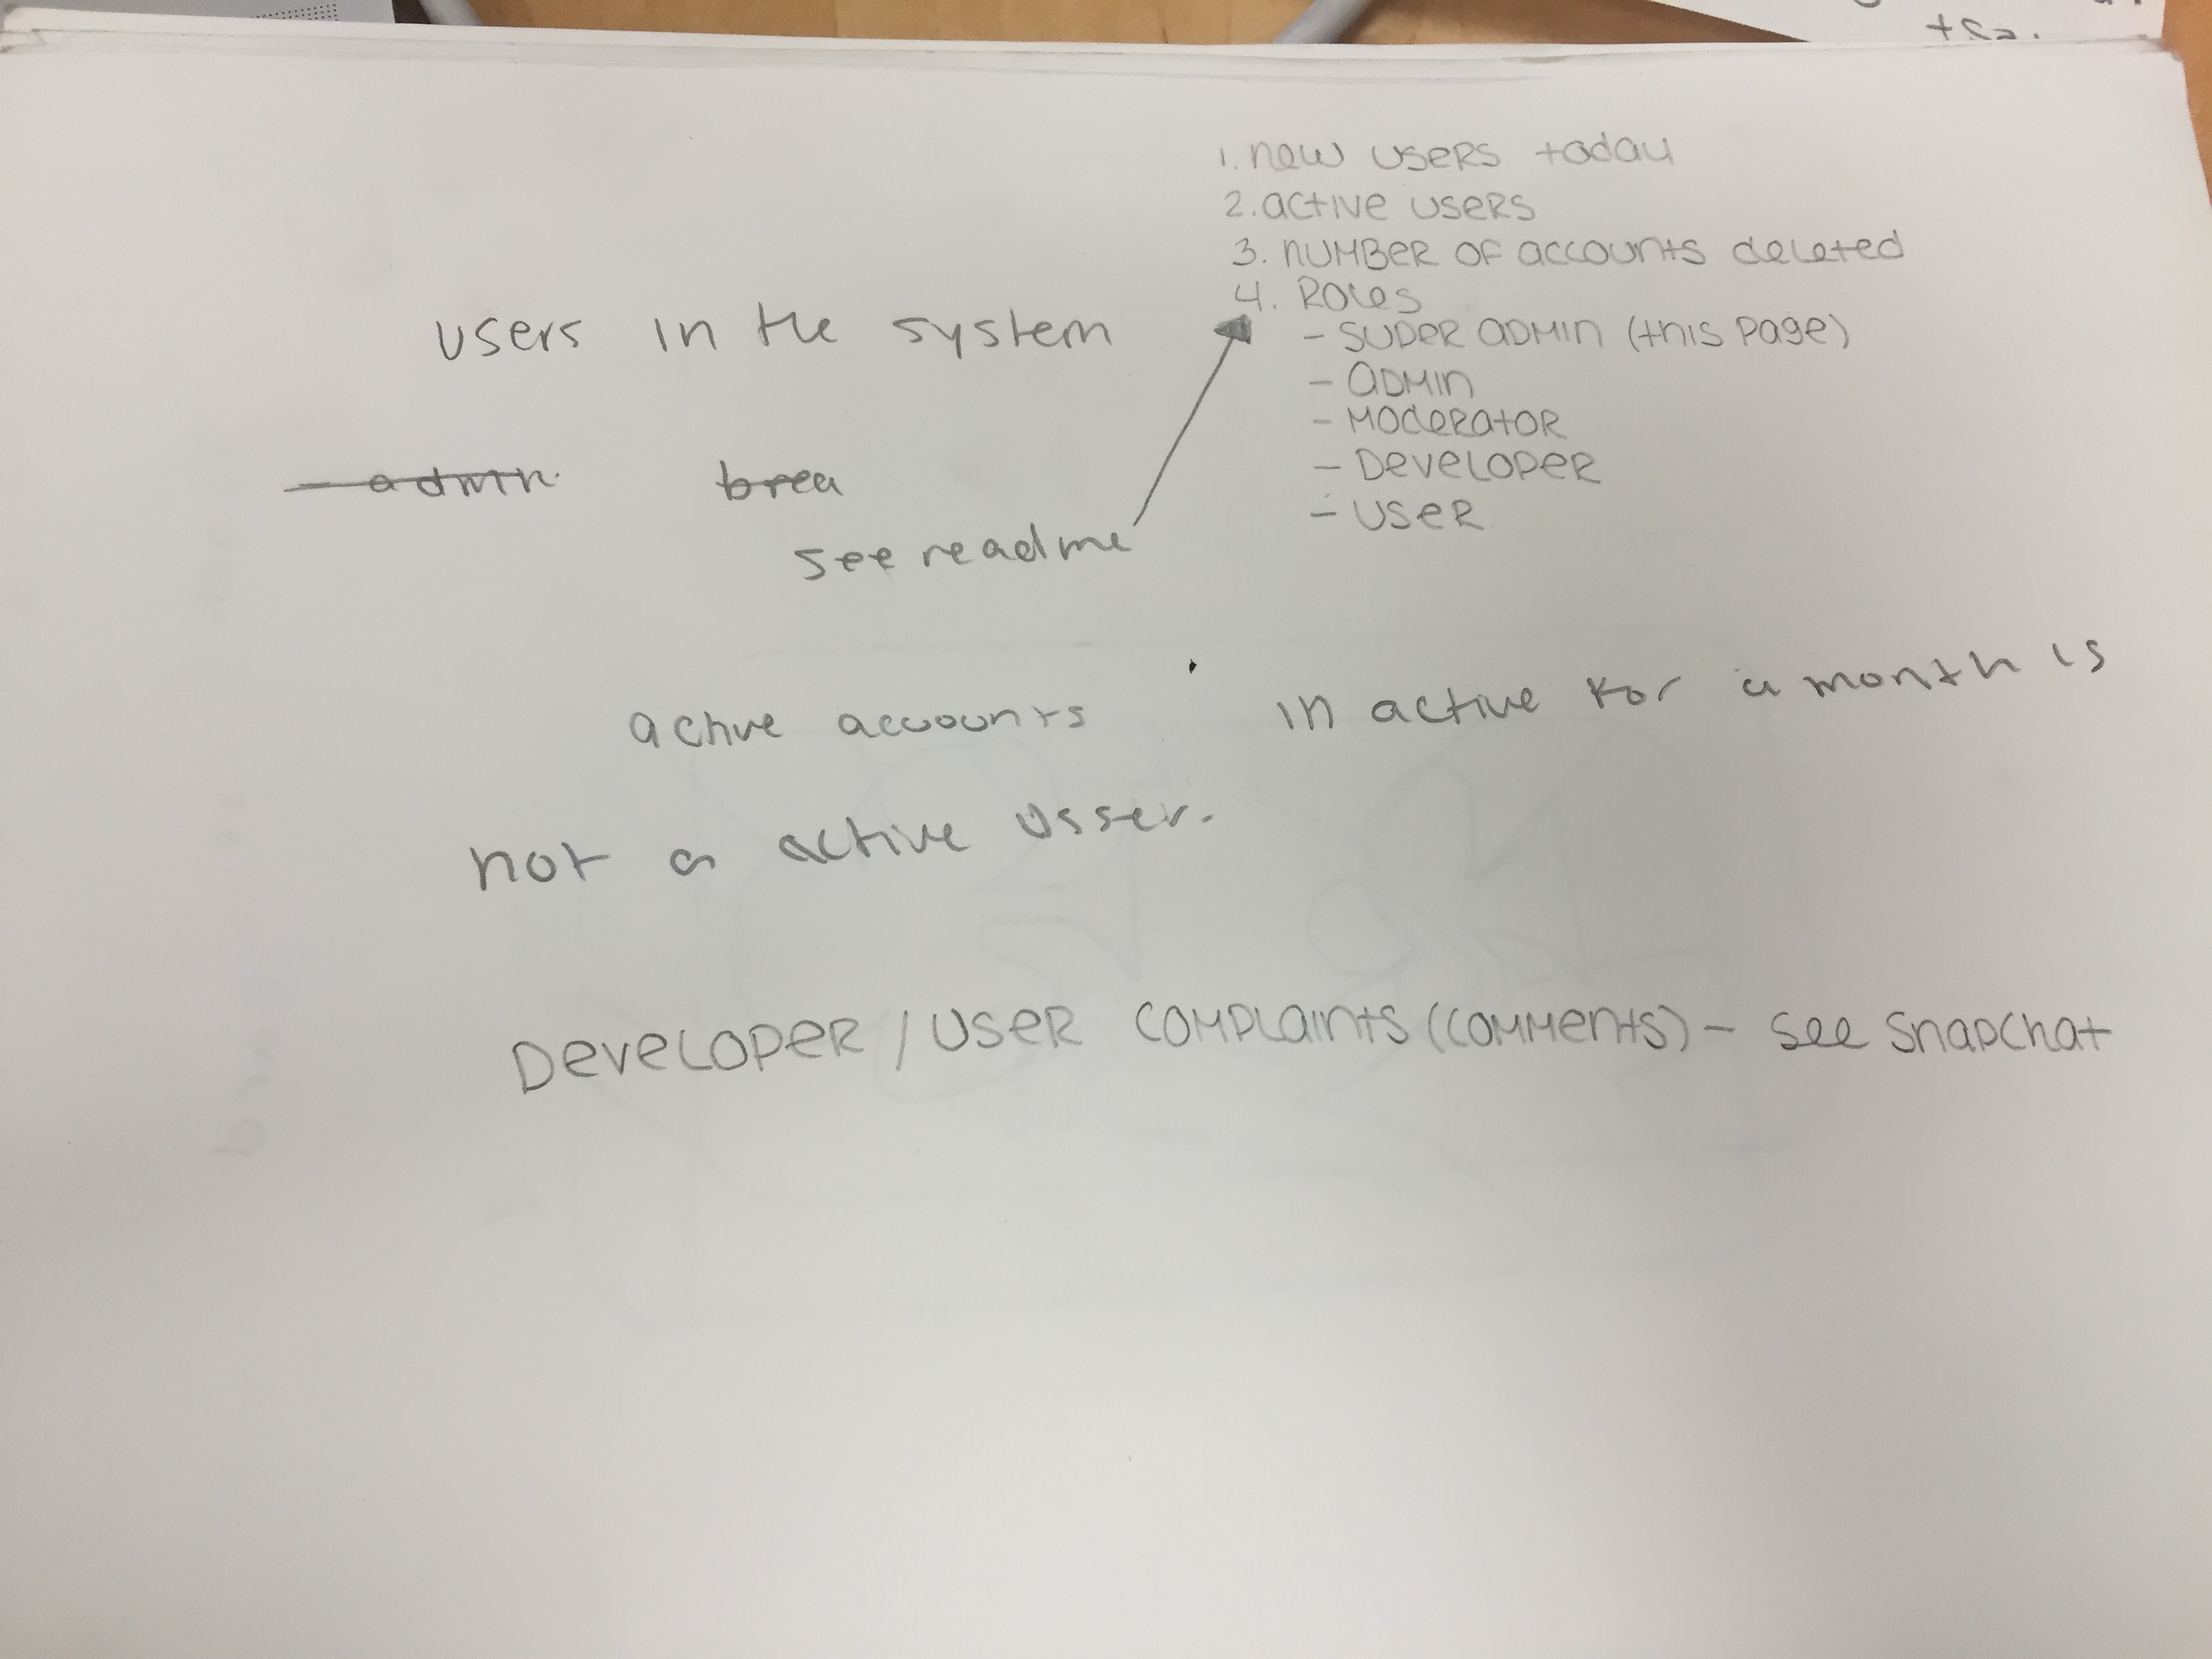 1. new users today
2. active users
3. number of accounts deleted
4. Roles
- super admin (this page)
- admin
- moderator
- Developer
- user
users in the system
admin brea
see readme
active accounts in active for a month is
not a active usser.
Developer/user complaints (comments) - see Snapchat